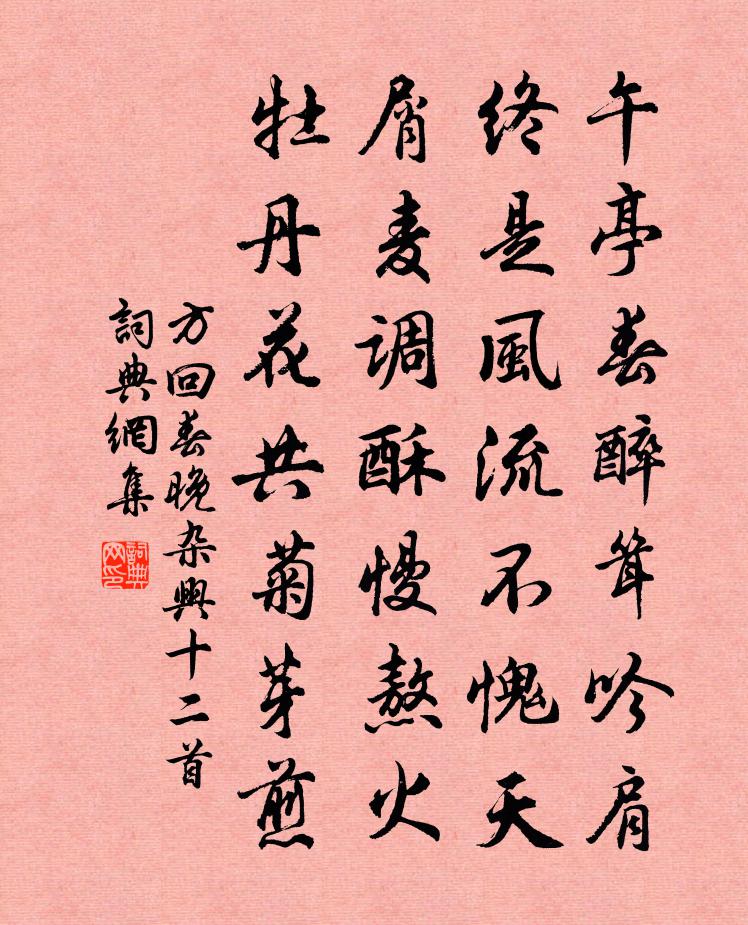 午亭春醉耸吟肩
终是風流不愧天
屑麦调酥慢熬火
牡丹花共菊芽煎
方回春晚杂興十二首
詞典網集
詞典网印